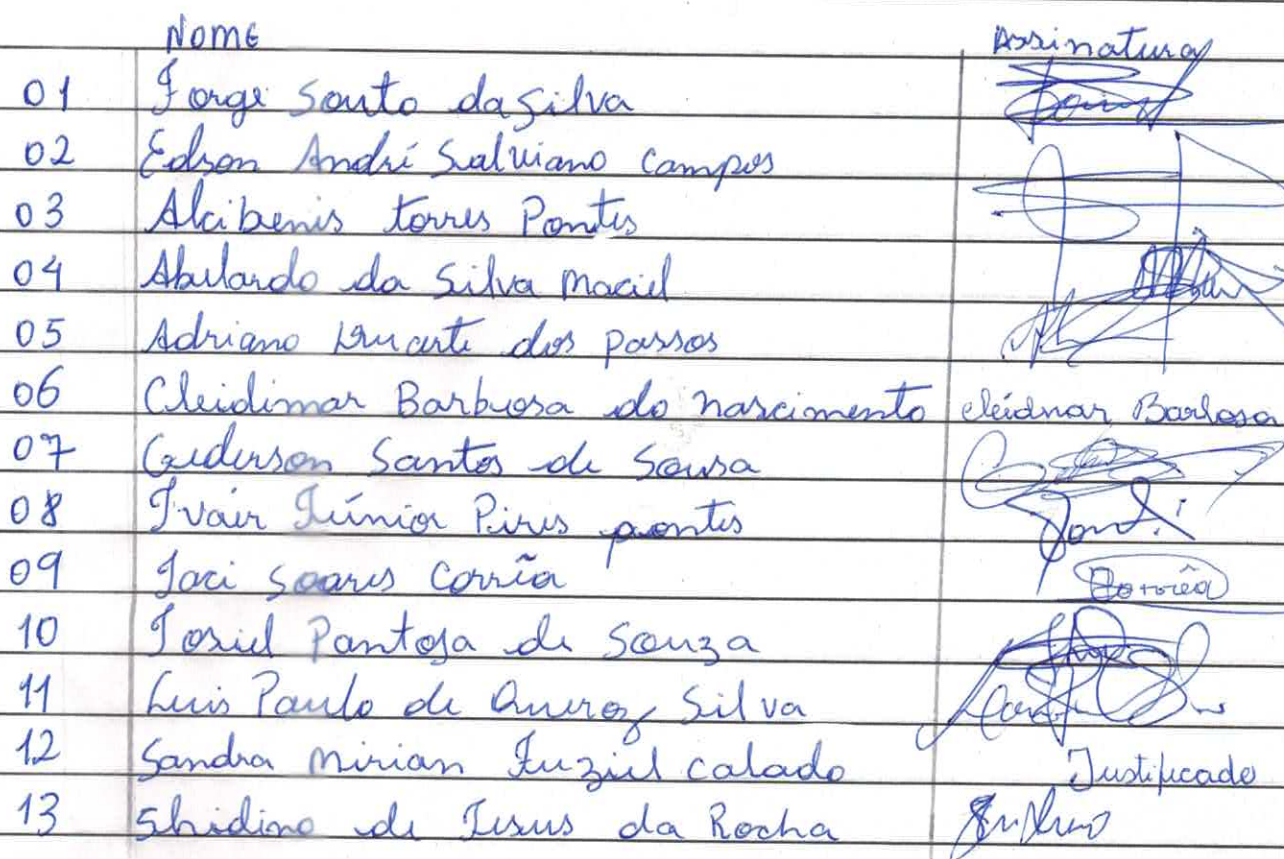 Nome Assinatura
01 Jorge Souto da Silva
02 Edson André Salviano Campos
03 Alcibenis torres Pontes
04 Abelardo da Silva Maciel
05 Adriano Duarte dos Passos
06 Cleidimar Barbosa do nascimento cleidnar Barbosa
07 Gederson Santos de Sousa
08 Ivair Júnior Pires pontes
09 Jaci Soares Corrêa Corrêa
10 Josiel Pantoja de Souza
11 Luis Paulo de Queroz Silva
12 Sandra Mirian Fuziel Calado Justificado
13 Shidino de Jesus da Rocha